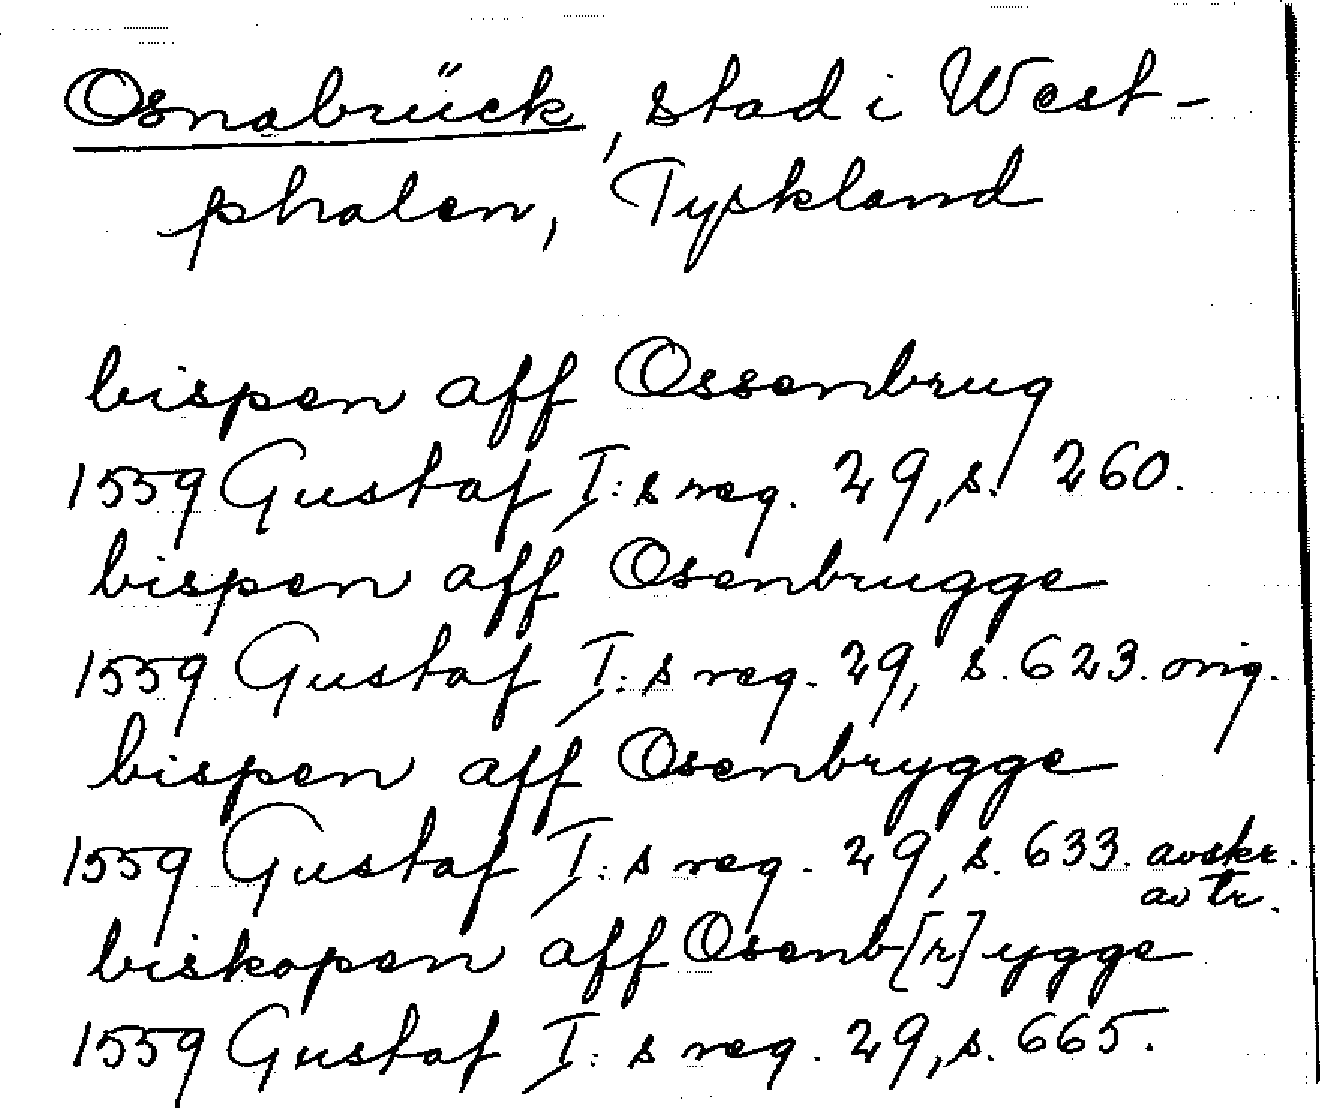 Osnabrück, stad i West-
phalen, Tyskland
bispen aff Ossenbrug
1559 Gustaf I:s reg. 29, s. 260.
bispen aff Osenbrugge
1559 Gustaf I:s reg. 29, s. 623. orig.
bispen aff Osenbrygge
1559 Gustaf I:s reg. 29, s. 633. avskr.
av tr.
biskopen aff Osenb[r]ygge
1559 Gustaf I:s reg. 29, s. 665.